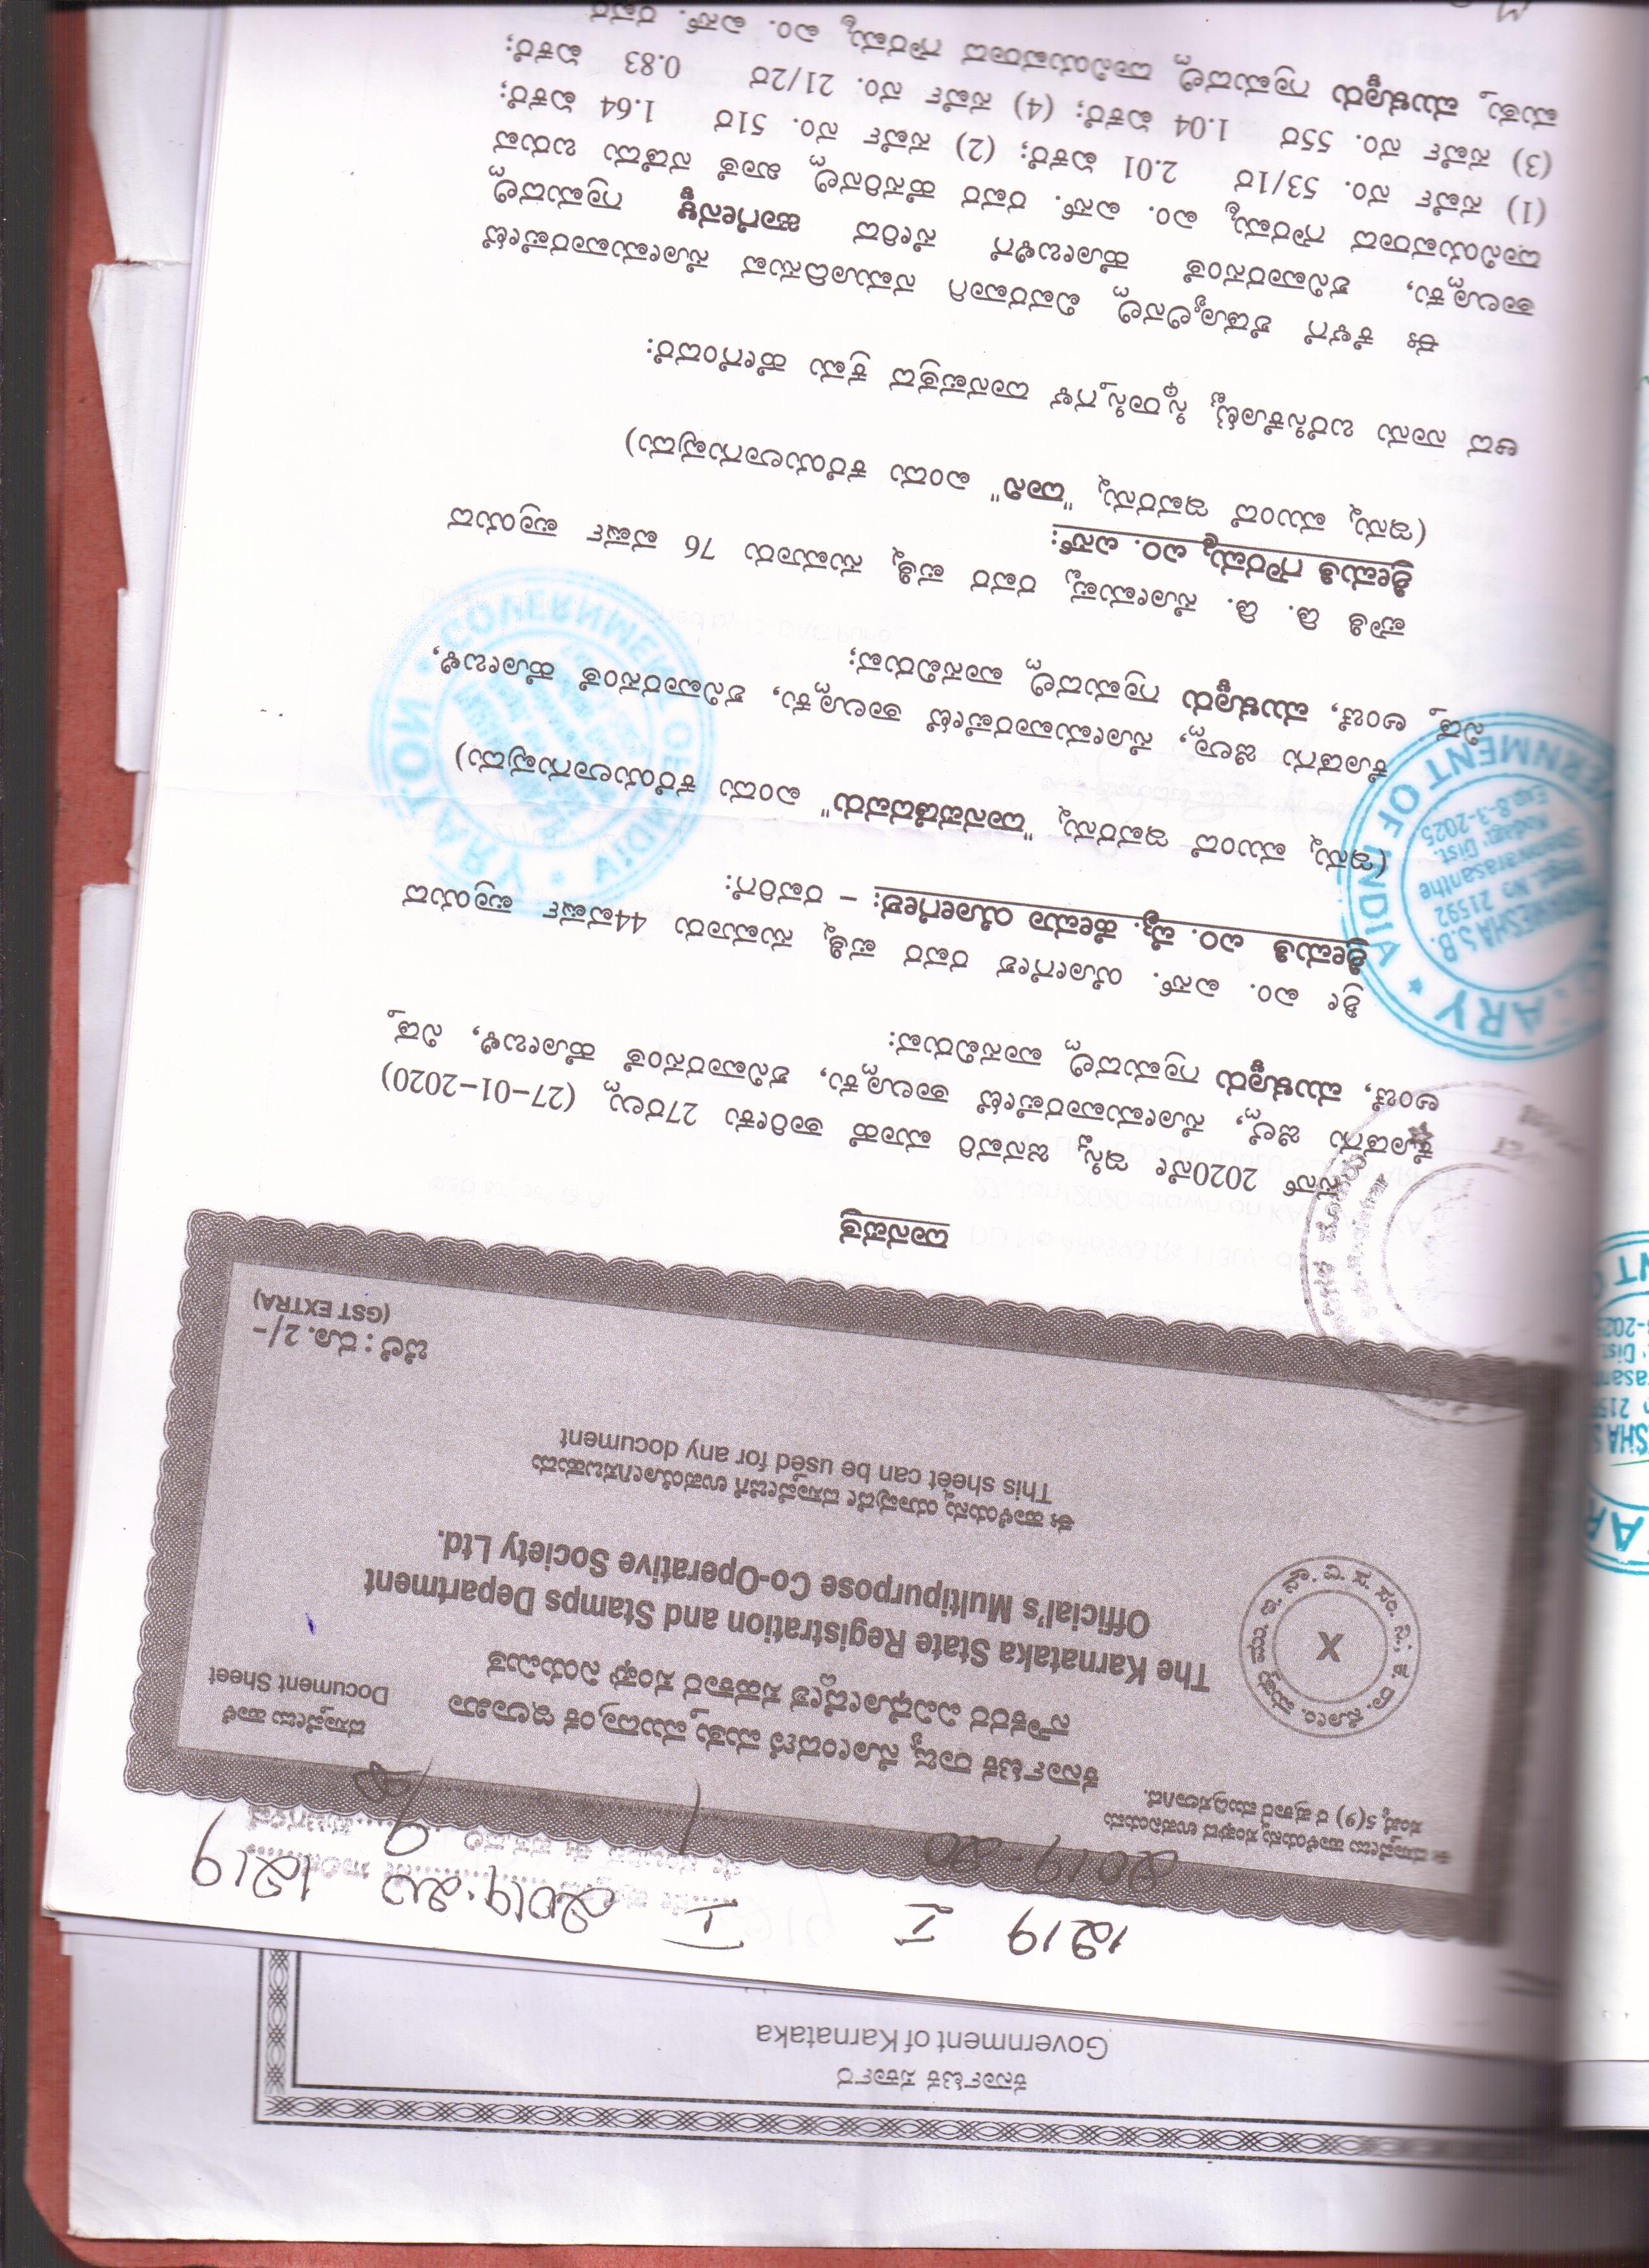 ಕರ್ನಾಟಕ ಸರ್ಕಾರ
Government of Karnataka
1219 I 2019-20
I 2019-20 1219
ಈ ದಸ್ತಾವೇಜು ಹಾಳೆಯನ್ನು ಸಂಘದ ಉಪನಿಯಮ
ಸಂಖ್ಯೆ 5(9) ರ ಪ್ರಕಾರ ಮುದ್ರಿಸಲಾಗಿದೆ.
ಕರ್ನಾಟಕ ರಾಜ್ಯ ನೋಂದಣಿ ಮತ್ತು ಮುದ್ರಾಂಕ ಇಲಾಖಾ
ನೌಕರರ ವಿವಿಧೋದ್ದೇಶ ಸಹಕಾರ ಸಂಘ ನಿಯಮಿತ
ದಸ್ತಾವೇಜು ಹಾಳೆ
Document Sheet
The Karnataka State Registration and Stamps Department
Official's Multipurpose Co-Operative Society Ltd.
X
ಈ ಹಾಳೆಯನ್ನು ಯಾವುದೇ ದಸ್ತಾವೇಜಿಗೆ ಉಪಯೋಗಿಸಬಹುದು
This sheet can be used for any document
ಬೆಲೆ : ರೂ. 2/-
(GST EXTRA)
ದಾನಪತ್ರ
ಸನ್ 2020ನೇ ಇಸ್ವಿ ಜನವರಿ ಮಾಹೆ ತಾರೀಕು 27ರಲ್ಲು (27-01-2020)
ಕೊಡಗು ಜಿಲ್ಲೆ, ಸೋಮವಾರಪೇಟೆ ತಾಲ್ಲೂಕು, ಶನಿವಾರಸಂತೆ ಹೋಬಳಿ, ನಿಡ್ತ
ಅಂಚೆ, ಮುಳ್ಳೂರು ಗ್ರಾಮದಲ್ಲಿ ವಾಸವಿರುವ:
ಶ್ರೀ ಎಂ. ಎಸ್. ಯೋಗೇಶ ರವರ ಪತ್ನಿ ಸುಮಾರು 44ವರ್ಷ ಪ್ರಾಯದ
ಶ್ರೀಮತಿ ಎಂ. ವೈ. ಹೇಮಾ ಯೋಗೇಶ: – ರವರಿಗೆ:
(ಇನ್ನು ಮುಂದೆ ಇವರನ್ನು "ದಾನಪಡೆದವರು" ಎಂದು ಕರೆಯಲಾಗುವುದು)
ಕೊಡಗು ಜಿಲ್ಲಾ, ಸೋಮವಾರಪೇಟೆ ತಾಲ್ಲೂಕು, ಶನಿವಾರಸಂತೆ ಹೋಬಳಿ,
ನಿಡ್ತ ಅಂಚೆ, ಮುಳ್ಳೂರು ಗ್ರಾಮದಲ್ಲಿ ವಾಸವಿರುವ;
ಪೌತಿ ಡಿ. ಡಿ. ಸೋಮಪ್ಪ ರವರ ಪತ್ನಿ ಸುಮಾರು 76 ವರ್ಷ ಪ್ರಾಯದ
ಶ್ರೀಮತಿ ಗೌರಮ್ಮ ಎಂ. ಎಸ್:
(ಇನ್ನು ಮುಂದೆ ಇವರನ್ನು "ದಾನಿ" ಎಂದು ಕರೆಯಲಾಗುವುದು)
ಆದ ನಾನು ಬರೆಸಿಕೊಟ್ಟ ಸ್ಥಿರಾಸ್ತಿಗಳ ದಾನಪತ್ರದ ಕ್ರಮ ಹೇಗೆಂದರೆ:
ಈ ಕೆಳಗೆ ಶೆಡ್ಯೂಲಿನಲ್ಲಿ ವಿವರವಾಗಿ ನಮೂದಿಸುವ ಸೋಮವಾರಪೇಟೆ
ತಾಲ್ಲೂಕು, ಶನಿವಾರಸಂತೆ ಹೋಬಳಿಗೆ ಸೇರಿದ ಹಾಗೇನಳ್ಳಿ ಗ್ರಾಮದಲ್ಲಿ
ದಾನಿಯವರಾದ ಗೌರಮ್ಮ ಎಂ. ಎಸ್. ರವರ ಹೆಸರಿನಲ್ಲಿ ಖಾತೆ ನಡೆದು ಬರುವ
(1) ಸರ್ವೆ ನಂ. 53/1ರ 2.01 ಏಕರೆ; (2) ಸರ್ವೆ ನಂ. 51ರ 1.64 ಏಕರೆ;
(3) ಸರ್ವೆ ನಂ. 55ರ 1.04 ಏಕರೆ; (4) ಸರ್ವೆ ನಂ. 21/2ರ 0.83 ಏಕರೆ;
ಮತ್ತು ಮುಳ್ಳೂರು ಗ್ರಾಮದಲ್ಲಿ ದಾನಿಯವರಾದ ಗೌರಮ್ಮ ಎಂ. ಎಸ್. ರವರ
NOTARY
GOVERNMENT OF INDIA
21592
Kodagu Dist.
Exp.8-3-2025